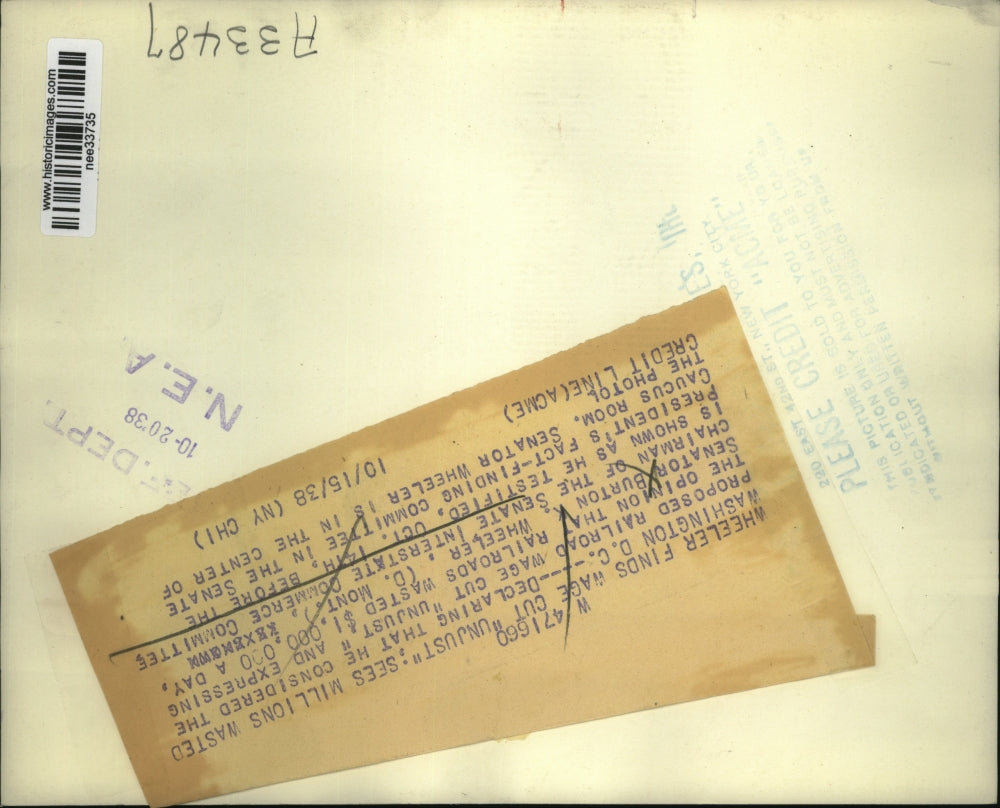 A33487
www.historicimages.com
nee33735
W 471660
WHEELER FINDS WAGE CUT "UNJUST"; SEES MILLIONS WASTED
WASHINGTON D.C.----DECLARING THAT HE CONSIDERED THE
PROPOSED RAILROAD WAGE CUT "UNJUST" AND EXPRESSING
THE OPINION THAT RAILROADS WASTED $1,000,000 A DAY,
SENATOR BURTON WHEELER, (D. MONT.),
CHAIRMAN OF THE SENATE INTERSTATE COMMERCE COMMITTEE
IS SHOWN AS HE TESTIFIED, OCT. 14TH BEFORE THE
PRESIDENT'S FACT-FINDING COMMITTEE IN, THE SENATE
CAUCUS ROOM. SENATOR WHEELER IS IN THE CENTER OF
THE PHOTOL
CREDIT LINE(ACME) 10/15/38 (NY CHI)
220 EAST 42ND ST., NEW YORK CITY
PLEASE CREDIT "ACME"
THIS PICTURE IS SOLD TO YOU FOR YOUR
PUBLICATION ONLY AND MUST NOT BE
SYNDICATED OR USED FOR ADVERTISING
WITHOUT WRITTEN PERMISSION FROM US
N.E.A.
10-20'38
DEPT.